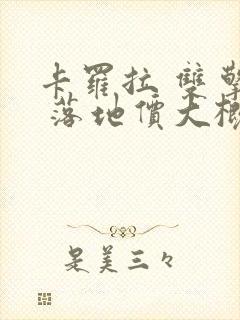 卡羅拉 雙擎
落地價大概
是美三々